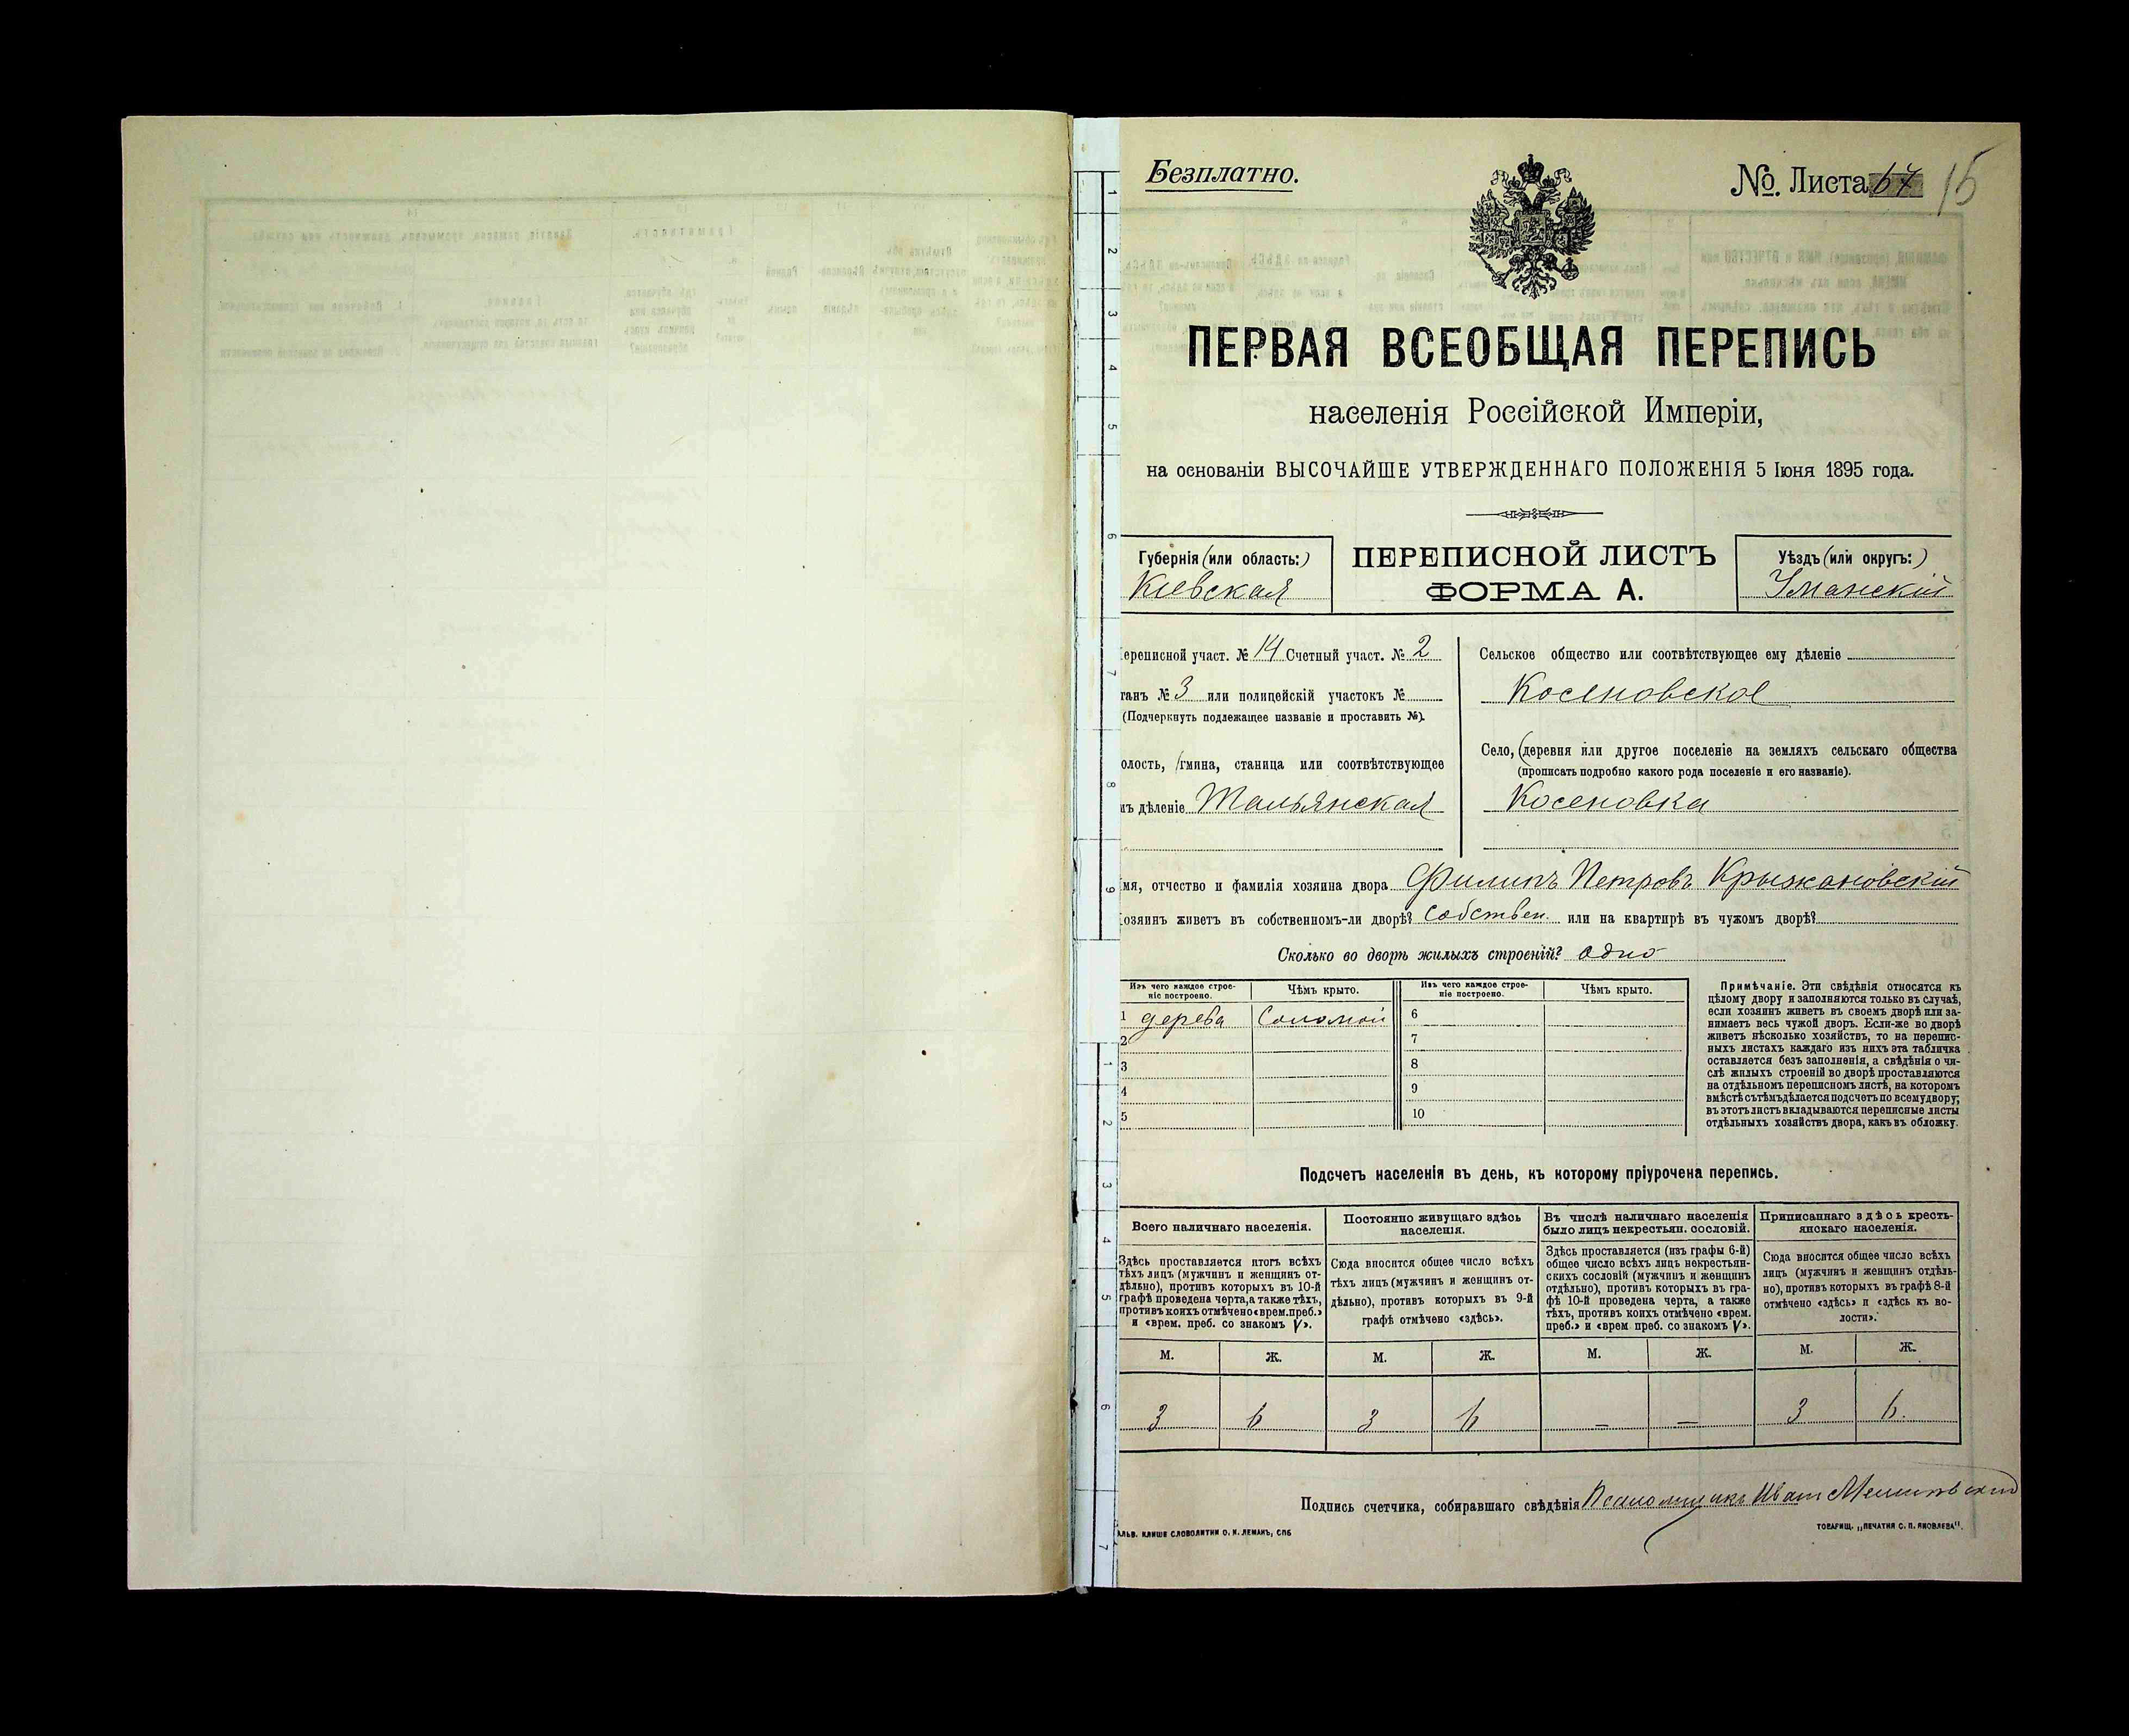 Безплатно.
№. Листа 67 15
ПЕРВАЯ ВСЕОБЩАЯ ПЕРЕПИСЬ
населенія Россійской Имперіи,
на основаніи ВЫСОЧАЙШЕ УТВЕРЖДЕННАГО ПОЛОЖЕНІЯ 5 Іюня 1895 года.
Губернія (или область:)
Кіевская
ПЕРЕПИСНОЙ ЛИСТЪ
ФОРМА А.
Уѣздъ (или округъ:)
Уманскій
ереписной участ. № 14 Счетный участ. № 2
танъ № 3 или полицейскій участокъ №
(Подчеркнуть подлежащее названіе и проставить №).
олость, (гмина, станица или соотвѣтствующее
мъ дѣленіе Тальянская
Сельское общество или соотвѣтствующее ему дѣленіе
Косеновское
Село, (деревня или другое поселеніе на земляхъ сельскаго общества
(прописать подробно какого рода поселеніе и его названіе).
Косеновка
мя, отчество и фамилія хозяина двора Филипъ Петровъ Крыжановскій
озяинъ живетъ въ собственномъ-ли дворѣ? Собствен. или на квартирѣ въ чужомъ дворѣ?
Сколько во дворѣ жилыхъ строеній? одно
Изъ чего каждое строе-
ніе построено.
Чѣмъ крыто.
Изъ чего каждое строе-
ніе построено.
Чѣмъ крыто.
1 дерева Соломой 6
2 7
3 8
4 9
5 10
Примѣчаніе. Эти свѣдѣнія относятся къ
цѣлому двору и заполняются только въ случаѣ,
если хозяинъ живетъ въ своемъ дворѣ или за-
нимаетъ весь чужой дворъ. Если-же во дворѣ
живетъ нѣсколько хозяйствъ, то на перепис-
ныхъ листахъ каждаго изъ нихъ эта табличка
оставляется безъ заполненія, а свѣдѣнія о чи-
слѣ жилыхъ строеній во дворѣ проставляются
на отдѣльномъ переписномъ листѣ, на которомъ
вмѣстѣ съ тѣмъ дѣлается подсчетъ по всему двору;
въ этотъ листъ вкладываются переписные листы
отдѣльныхъ хозяйствъ двора, какъ въ обложку.
Подсчетъ населенія въ день, къ которому пріурочена перепись.
Всего наличнаго населенія.
Здѣсь проставляется итогъ всѣхъ
тѣхъ лицъ (мужчинъ и женщинъ от-
дѣльно), противъ которыхъ въ 10-й
графѣ проведена черта, а также тѣхъ,
противъ коихъ отмѣчено «врем. преб.»
и «врем. преб. со знакомъ V».
Постоянно живущаго здѣсь
населенія.
Сюда вносится общее число всѣхъ
тѣхъ лицъ (мужчинъ и женщинъ от-
дѣльно), противъ которыхъ въ 9-й
графѣ отмѣчено «здѣсь».
Въ числѣ наличнаго населенія
было лицъ некрестьян. сословій.
Здѣсь проставляется (изъ графы 6-й)
общее число всѣхъ лицъ некрестьян-
скихъ сословій (мужчинъ и женщинъ
отдѣльно), противъ которыхъ въ гра-
фѣ 10-й проведена черта, а также
тѣхъ, противъ коихъ отмѣчено «врем.
преб.» и «врем преб. со знакомъ V».
Приписаннаго здѣсь кресть-
янскаго населенія.
Сюда вносится общее число всѣхъ
лицъ (мужчинъ и женщинъ отдѣль-
но), противъ которыхъ въ графѣ 8-й
отмѣчено «здѣсь» и «здѣсь къ во-
лости».
М. Ж. М. Ж. М. Ж. М. Ж.
3 6 3 6 — — 3 6.
Подпись счетчика, собиравшаго свѣдѣнія Псаломщикъ Иван
АЛЬВ. КЛИШЕ СЛОВОЛИТНИ О. И. ЛЕМАНЪ, СПБ
ТОВАРИЩ. „ПЕЧАТНЯ С. П. ЯКОВЛЕВА".